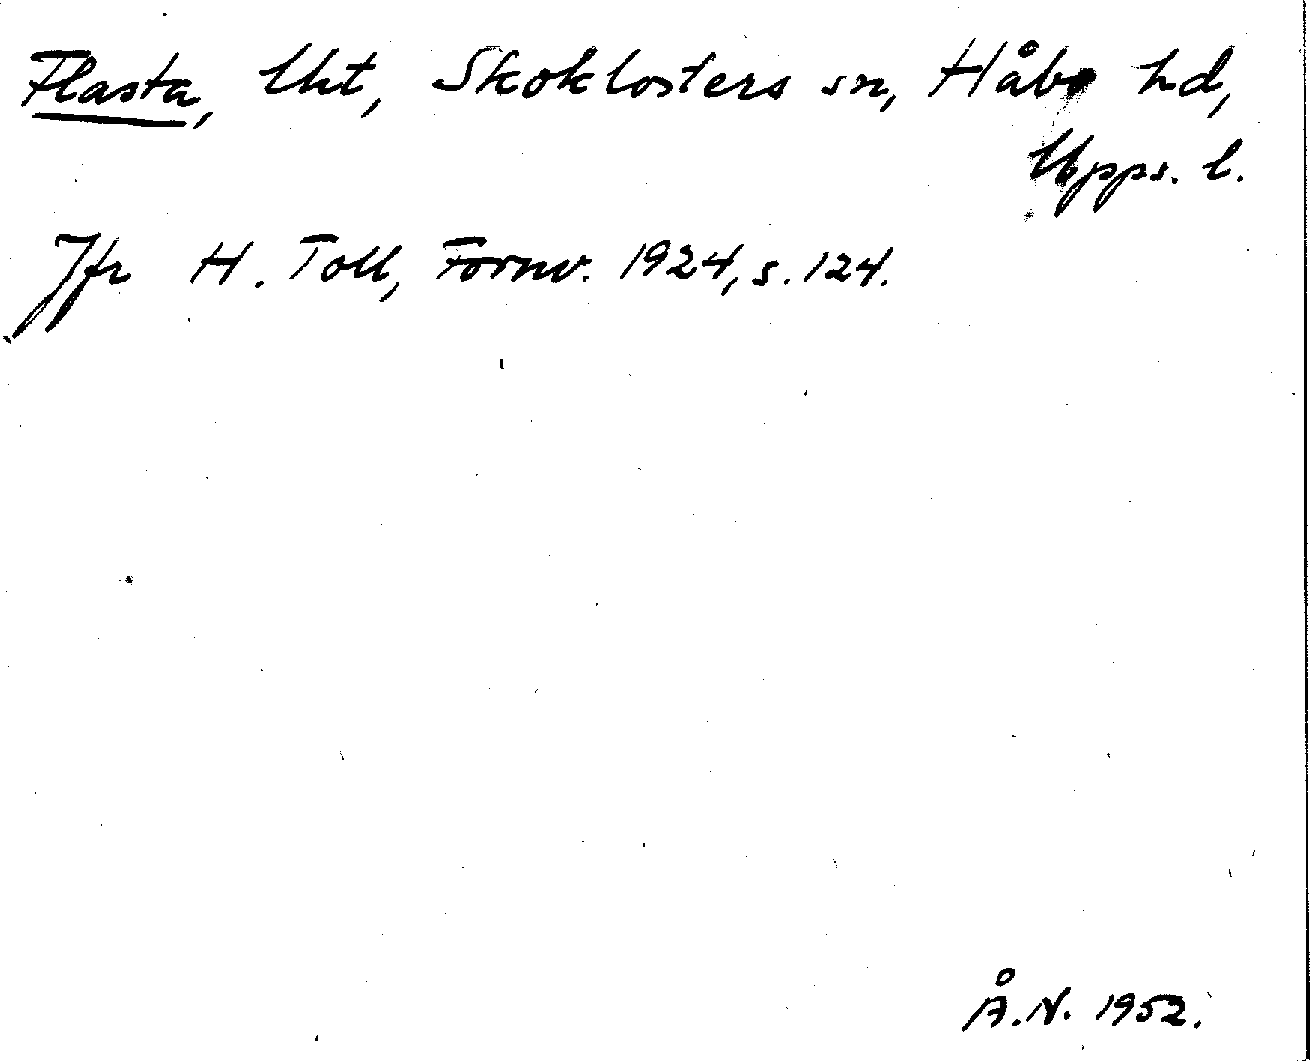 Flasta, Ukt, Skoklosters sn, Håbo hd,
Upps. l.
Jfr H. Toll, Fornv. 1924, s. 124.
Å.N. 1952.